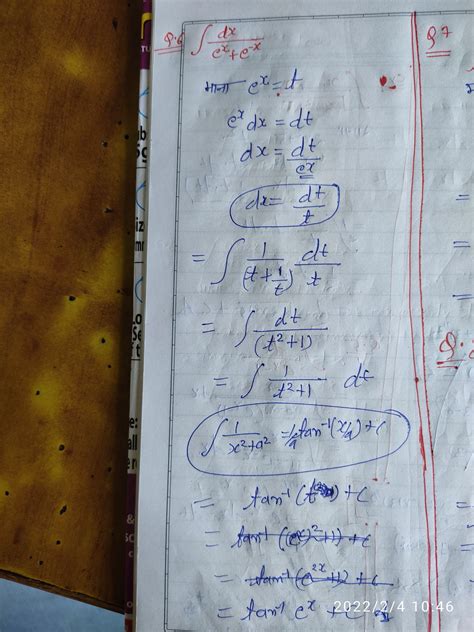 Q.6 ∫ dx/(eˣ+e⁻ˣ)
Q 7
माना eˣ = t
eˣ dx = dt
dx = dt/eˣ
dx = dt/t
= ∫ 1/(t+1/t) dt/t
= ∫ dt/(t²+1)
= ∫ 1/(t²+1) dt
∫ 1/(x²+a²) = 1/a tan⁻¹(x/a) + c
= tan⁻¹(t) + c
= tan⁻¹((eˣ)²+1) + c
= tan⁻¹(e²ˣ+1) + c
= tan⁻¹ eˣ + c
2022/2/4 10:46